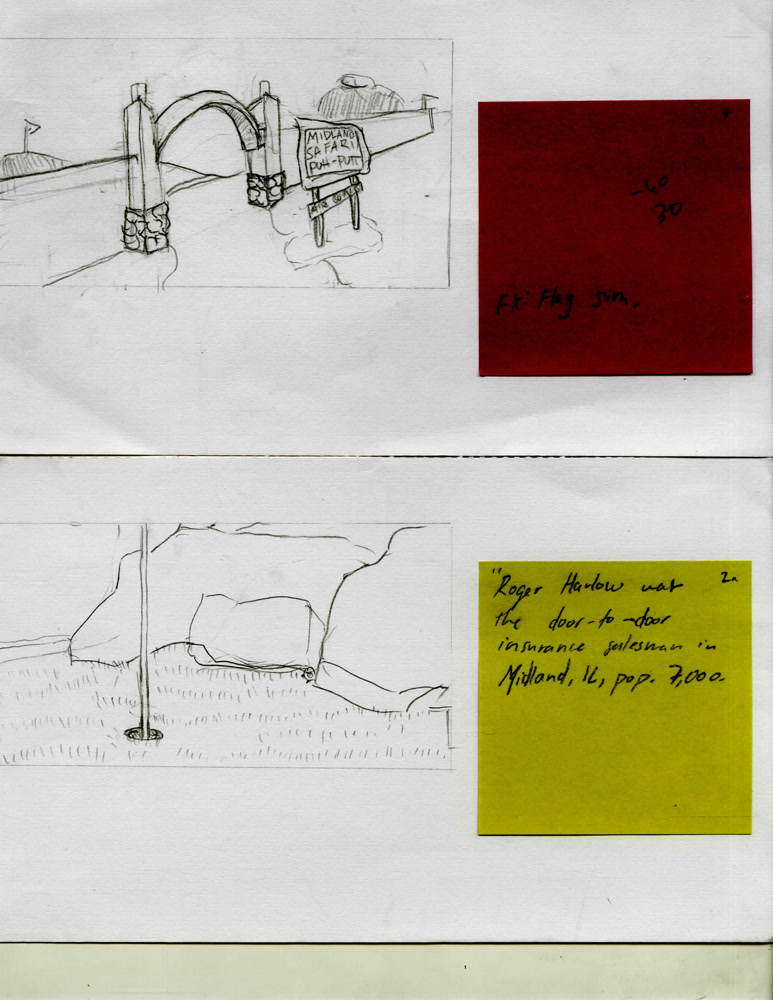 MIDLAND
SAFARI
PUTT-PUTT
-60
30
FX: Flag sim.
2a
"Roger Harlow was
the door-to-door
insurance salesman in
Midland, IL, pop. 7,000.